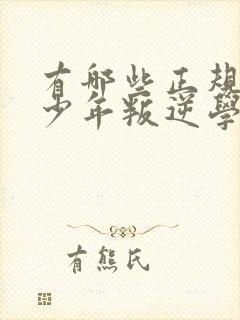 有哪些正规
少年叛逆學
有熊氏